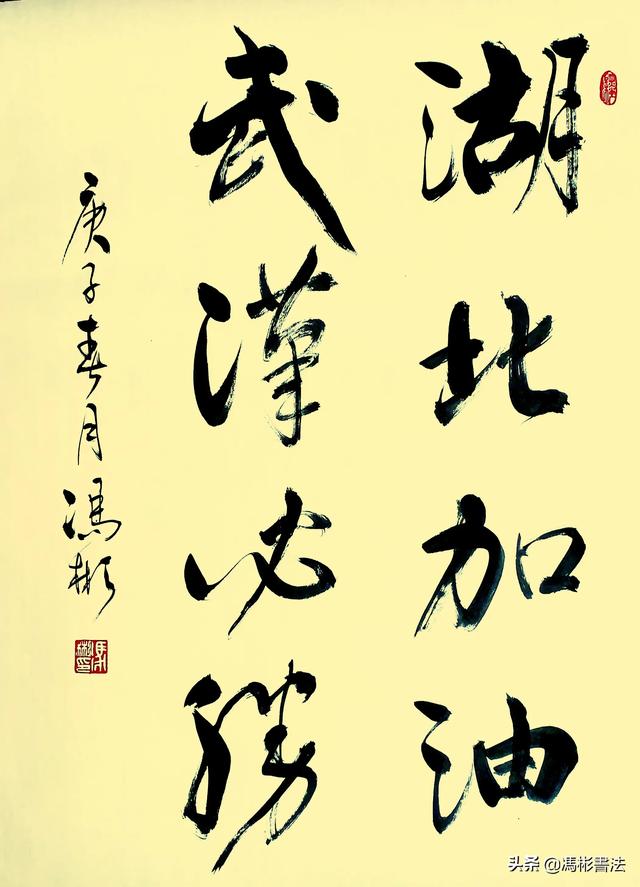 湖北加油
武漢必勝
庚子春月馮彬
头条@馮彬書法